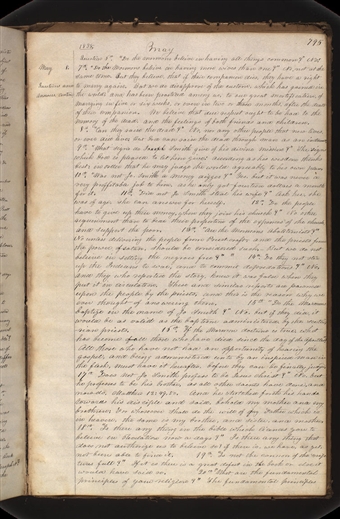 795
1838
May
May 8.
Questions and
Question 6th "Do the Mormons believe in having all things common?" No.
7th "Do the Mormons believe in having more wives than one?" No, not at the
same time. But they believe that if their companion dies, they have a right
to marry again. But we do disapprove of the custom, which has gained in
the world, and has been practised among us, to our great mortification, of
marrying in five or six weeks, or even in two or three months, after the death
of their companion. We believe that due respect ought to be had to the
memory of the dead, and the feelings of both friends and children.
8th "Can they raise the dead?" No, nor any other people that now lives,
or ever did live. But God can raise the dead, through man as an instru
9th "What signs does Joseph Smith give of his divine mission?" The signs
which God is pleased to let him give, according as his wisdom thinks
best, in order that he may judge the world agreeably to his own plan.
10th "Was not Jo Smith a money digger?" Yes, but it was never a
very profitable job to him, as he only got fourteen dollars a month
for it. 11th "Did not Jo Smith steal his wife?" Ask her, she
was of age, she can answer for herself. 12th "Do the people
have to give up their money, when they join his church?" No other
requirement than to bear their proportion of the expenses of the church,
and support the poor. 13th "Are the Mormons abolitionists?"
No, unless delivering the people from Priestcraft, and the priests from
the power of Satan, should be considered such. But we do not
believe in setting the negroes free. 14th "Do they not stir
up the Indians to war, and to commit depredations?" No,
and they who reported the story, knew it was false when they
put it in circulation. These and similar reports are palmed
upon the people by the priests, and this is the reason why we
ever thought of answering them. 15th "Do the Mormons
baptize in the name of Jo Smith?" No, but if they did, it
would be as valid as the baptism administered by the sectar
ian priests. 16th "If the Mormon doctrine is true, what
has become of all those who have died since the days of the apostles?"
All those who have not had an opportunity of hearing the
gospel, and being administered unto by an inspired man in
the flesh, must have it hereafter, before they can be finally judged.
17th "Does not Jo Smith profess to be Jesus Christ?" No, but
he professes to be his brother, as all other saints have done, and
now do. Matthew 12:49, 50. And he stretched forth his hand
towards his disciples and said, Behold my mother and my
brethren: For whosoever shall do the will of my Father which is
in heaven, the same is my brother, and sister, and mother.
18th "Is there any thing in the Bible which licenses you to
believe in revelation now a days?" Is there any thing that
does not authorize us to believe so; if there is, we have, as yet,
not been able to find it. 19th "Is not the canon of the scrip
tures full?" If it is, there is a great defect in the book, or else it
would have said so. 20th "What are the fundamental
principles of your religion?" The fundamental principles